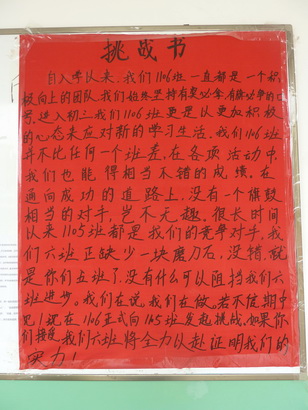 挑战书
自入学以来，我们1106班一直都是一个积
极向上的团队，我们始终坚持有爱必拿，有旗必争的心
思，进入初三我们1106班更是以更加积极
的心态来应对新的学习生活，我们1106班
并不比任何一个班差，在各项活动中，
我们也能得相当不错的成绩，在
通向成功的道路上，没有一个旗鼓
相当的对手，岂不无趣，很长时间
以来1105班都是我们的竞争对手，我
们六班正缺少一块磨刀石，没错，就
是你们五班了，没有什么可以阻挡我们六
班进步。我们在说，我们在做，若不信期中
见！现在1106正式向1105班发起挑战，如果你
们接受，我们六班将全力以赴证明我们的
实力！